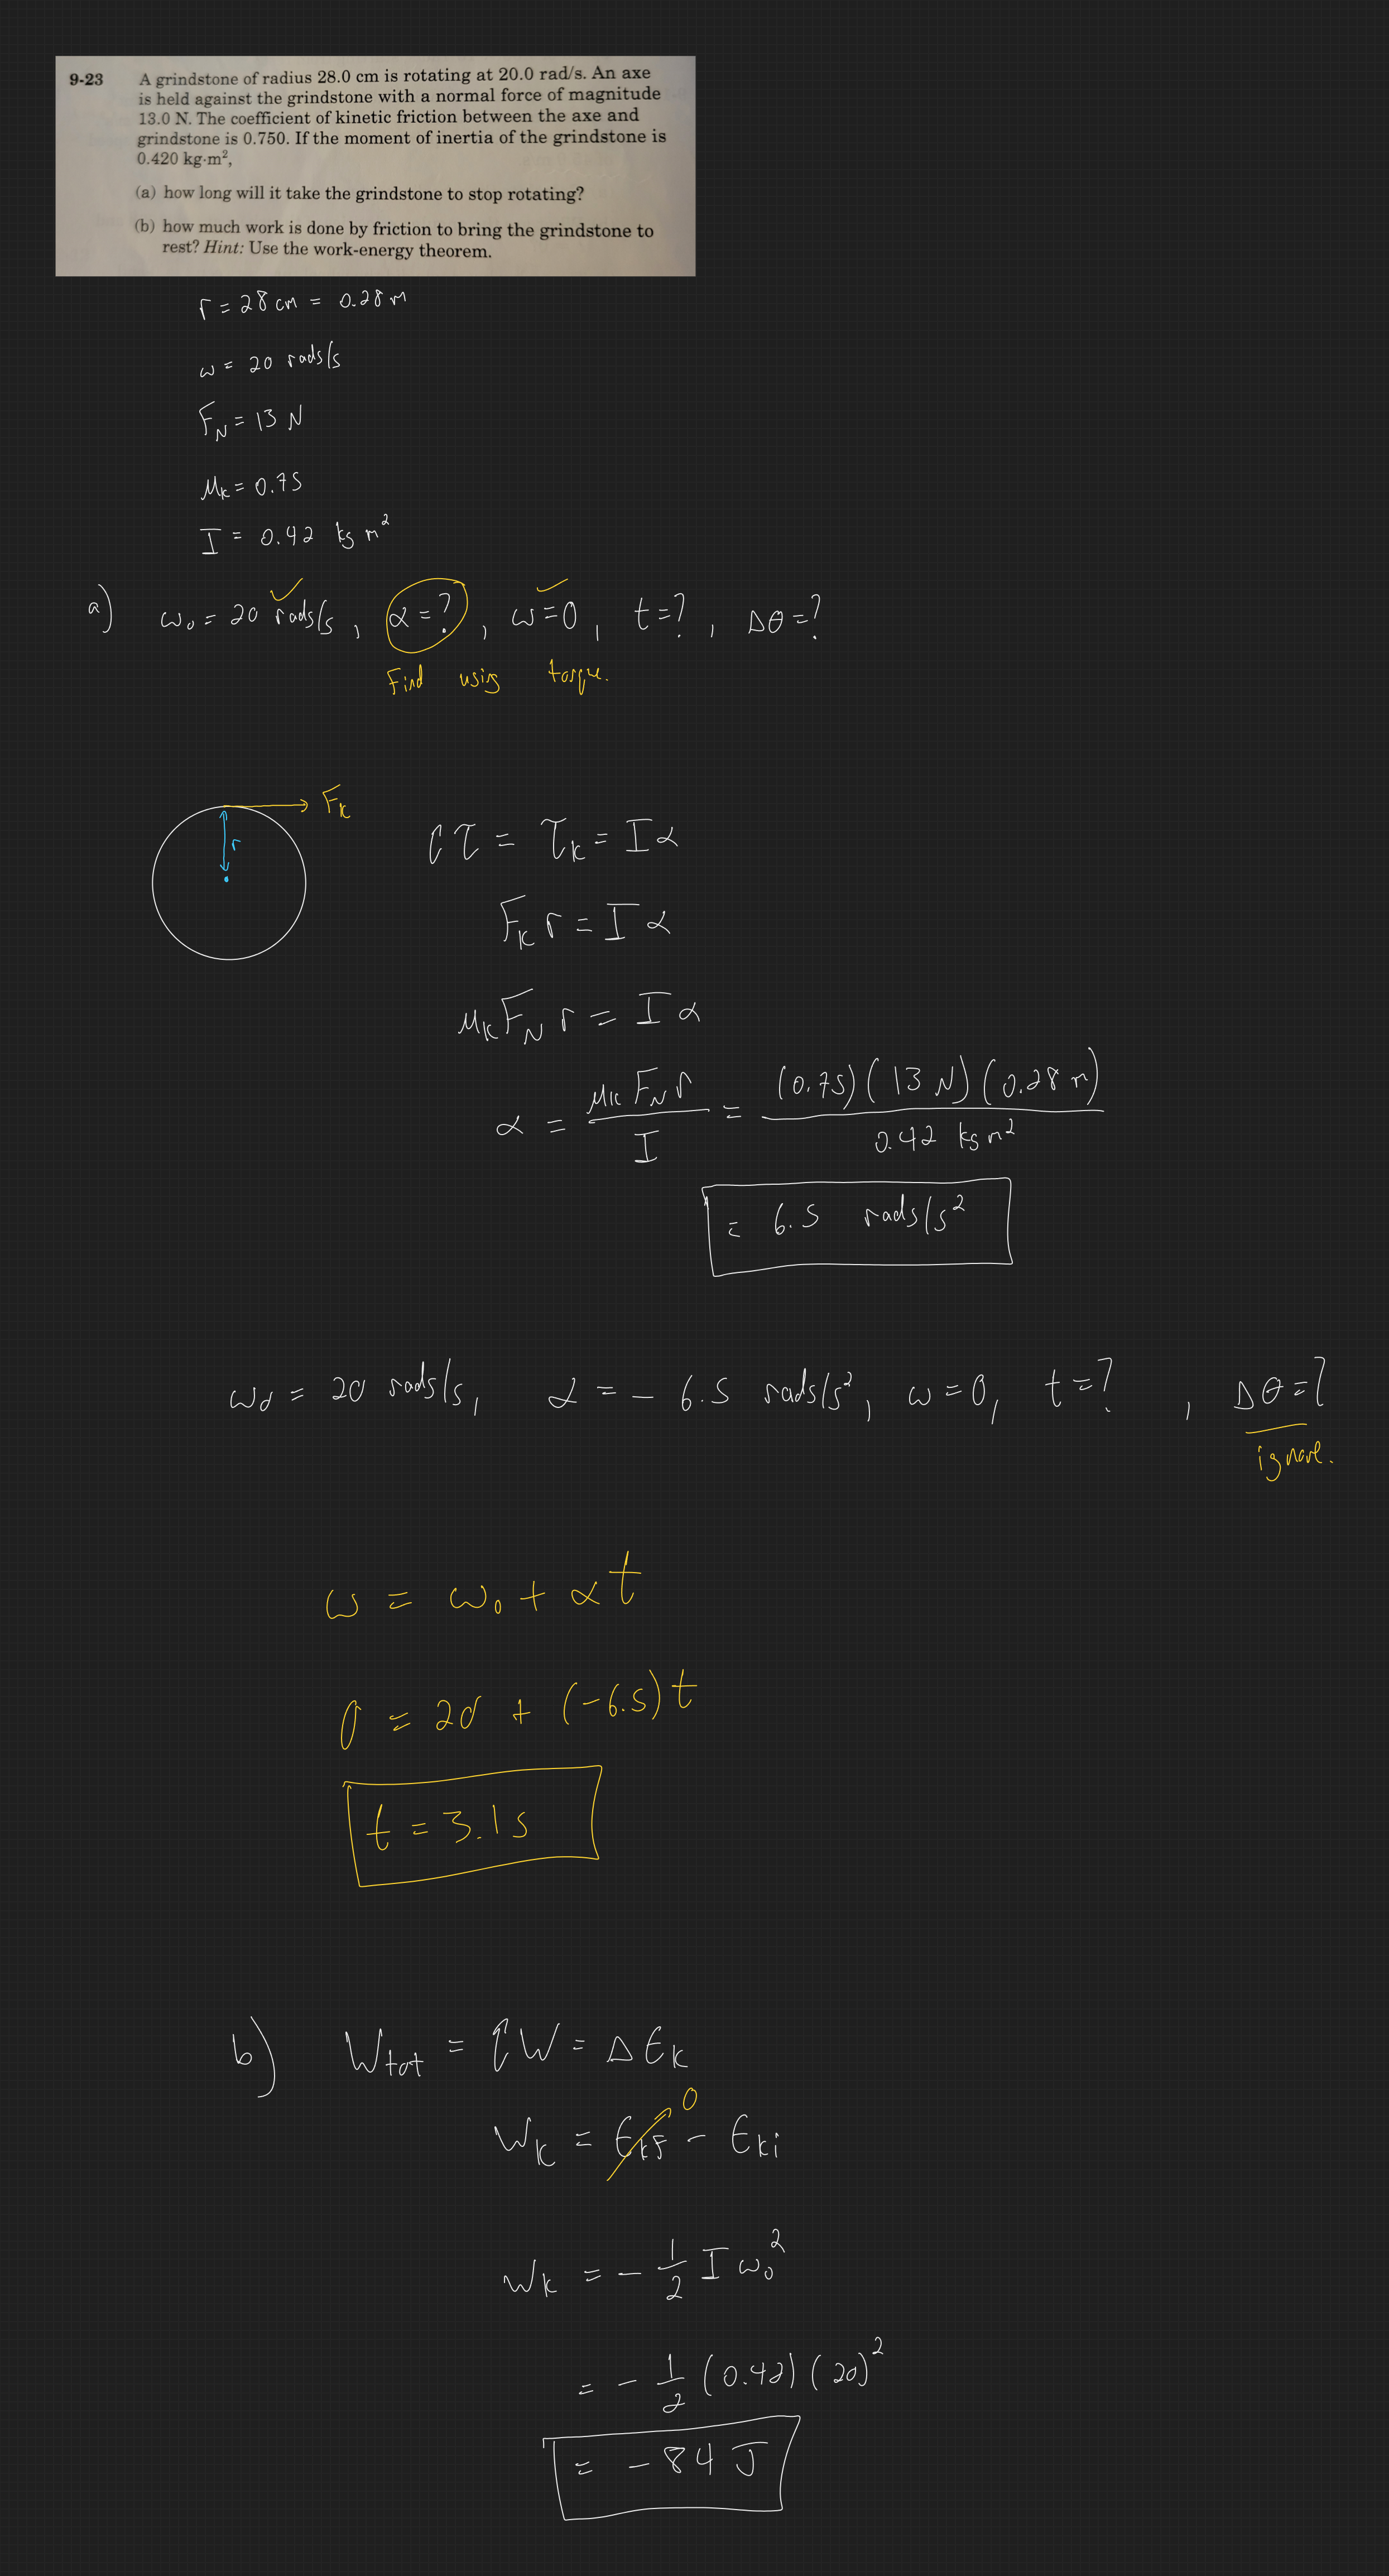 9-23 A grindstone of radius 28.0 cm is rotating at 20.0 rad/s. An axe
is held against the grindstone with a normal force of magnitude
13.0 N. The coefficient of kinetic friction between the axe and
grindstone is 0.750. If the moment of inertia of the grindstone is
0.420 kg·m²,
(a) how long will it take the grindstone to stop rotating?
(b) how much work is done by friction to bring the grindstone to
rest? Hint: Use the work-energy theorem.
r = 28 cm = 0.28 m
ω = 20 rads/s
F_N = 13 N
μ_k = 0.75
I = 0.42 kg m²
a) ω₀ = 20 rads/s, α = ?, ω = 0, t = ?, Δθ = ?
Find using torque.
F_k
r
τ = τ_k = I α
F_k r = I α
μ_k F_N r = I α
α = μ_k F_N r / I = (0.75)(13 N)(0.28 m) / 0.42 kg m²
= 6.5 rads/s²
ω₀ = 20 rads/s, α = - 6.5 rads/s², ω = 0, t = ?, Δθ = ?
ignore.
ω = ω₀ + α t
0 = 20 + (-6.5) t
t = 3.1 s
b) W_tot = W = Δ E_k
W_k = E_kf - E_ki
0
W_k = - 1/2 I ω₀²
= - 1/2 (0.42) (20)²
= - 84 J